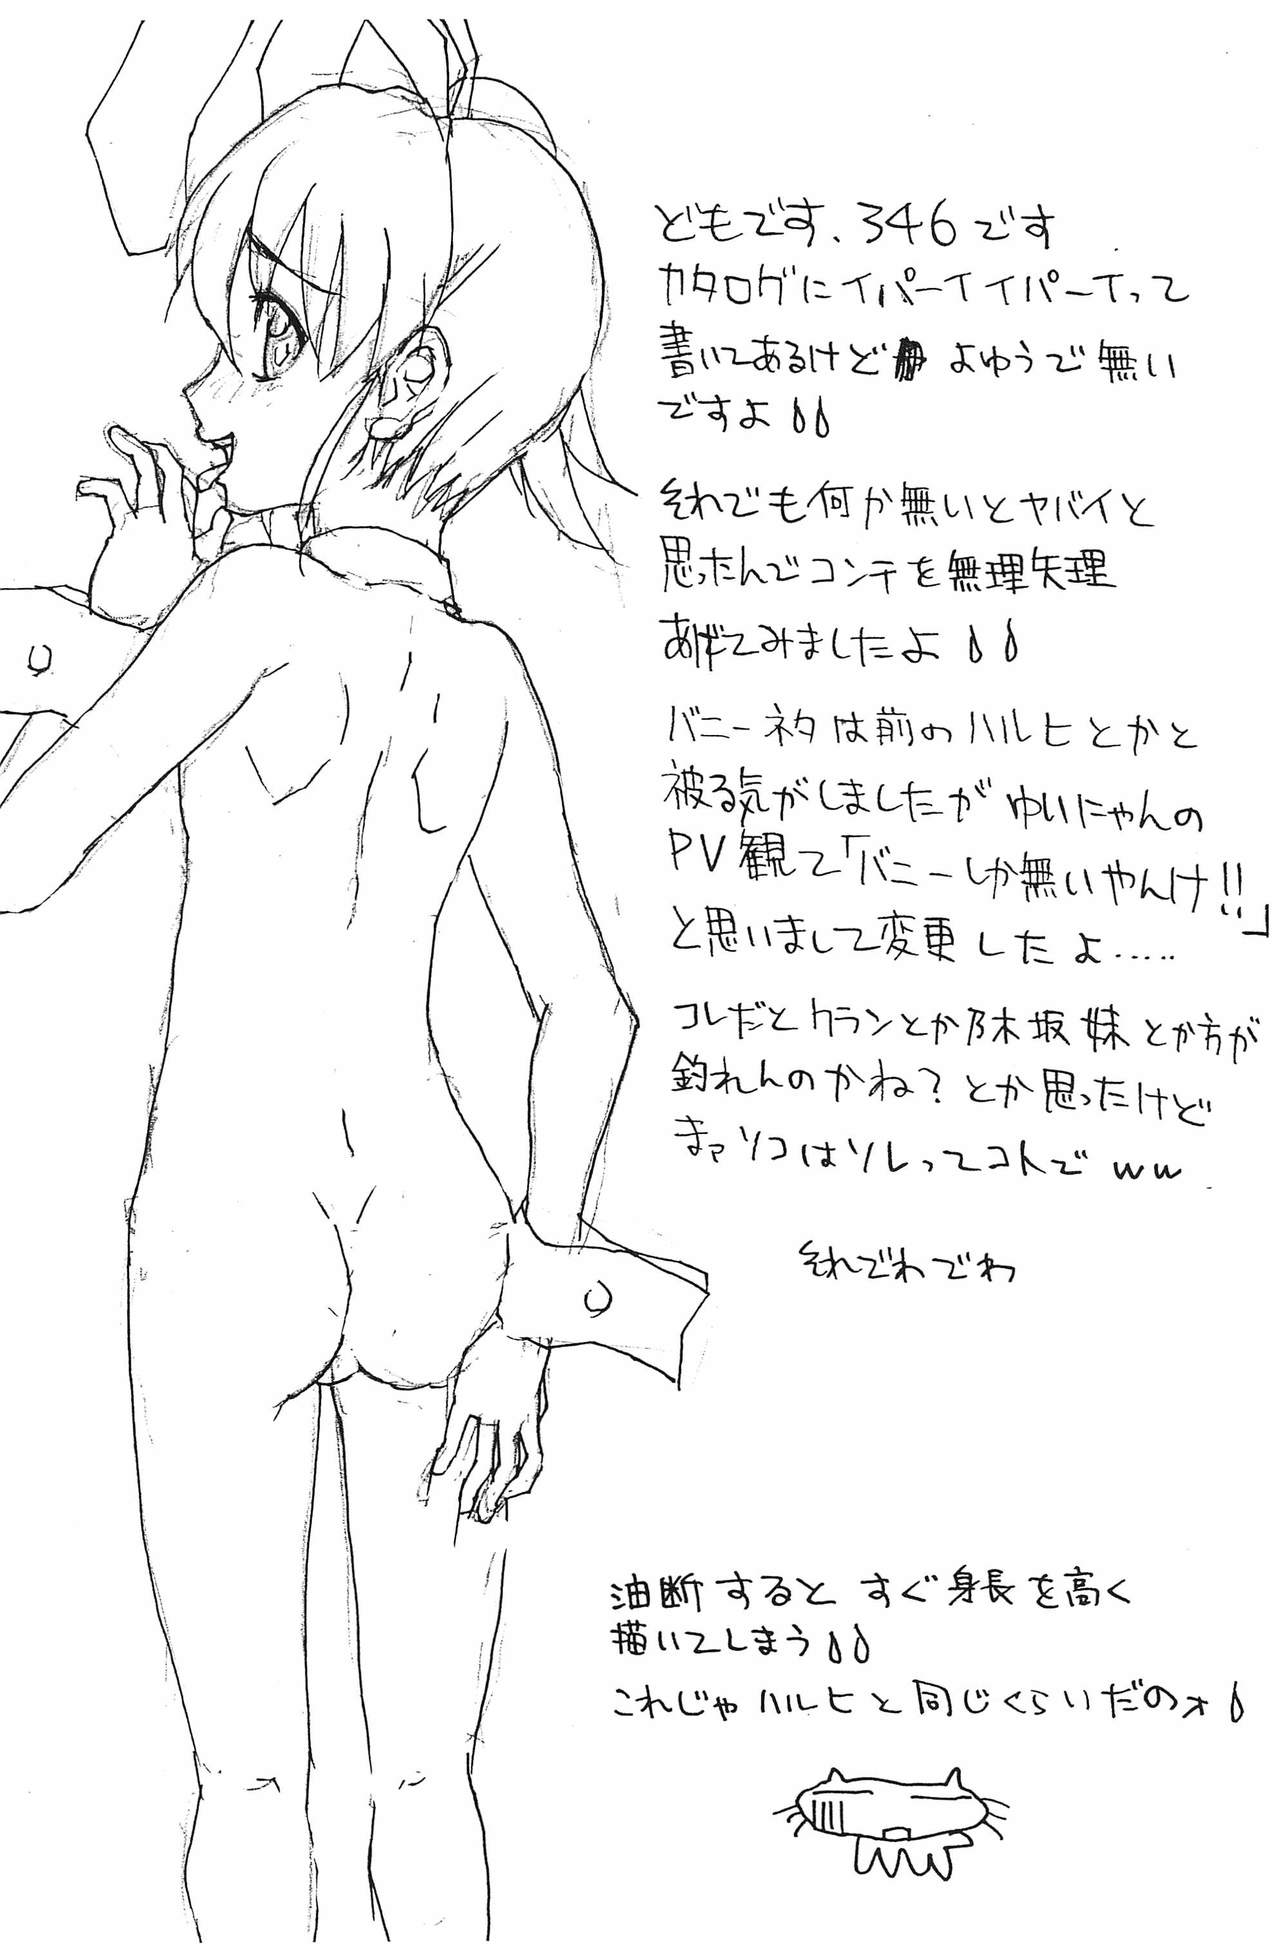 どもです、346です
カタログにイパーイイパーイって
書いてあるけど よゆうで無い
ですよ
それでも何か無いとヤバイと
思ったんでコンテを無理矢理
あげてみましたよ
バニーネタは前のハルヒとかと
被る気がしましたがゆいにゃんの
PV観て「バニーしか無いやんけ!!」
と思いまして変更したよ.....
コレだとクランとか乃木坂妹とか方が
釣れんのかね?とか思ったけど
まァソコはソレってコトでww
それでわでわ
油断するとすぐ身長を高く
描いてしまう
これじゃハルヒと同じくらいだのォ